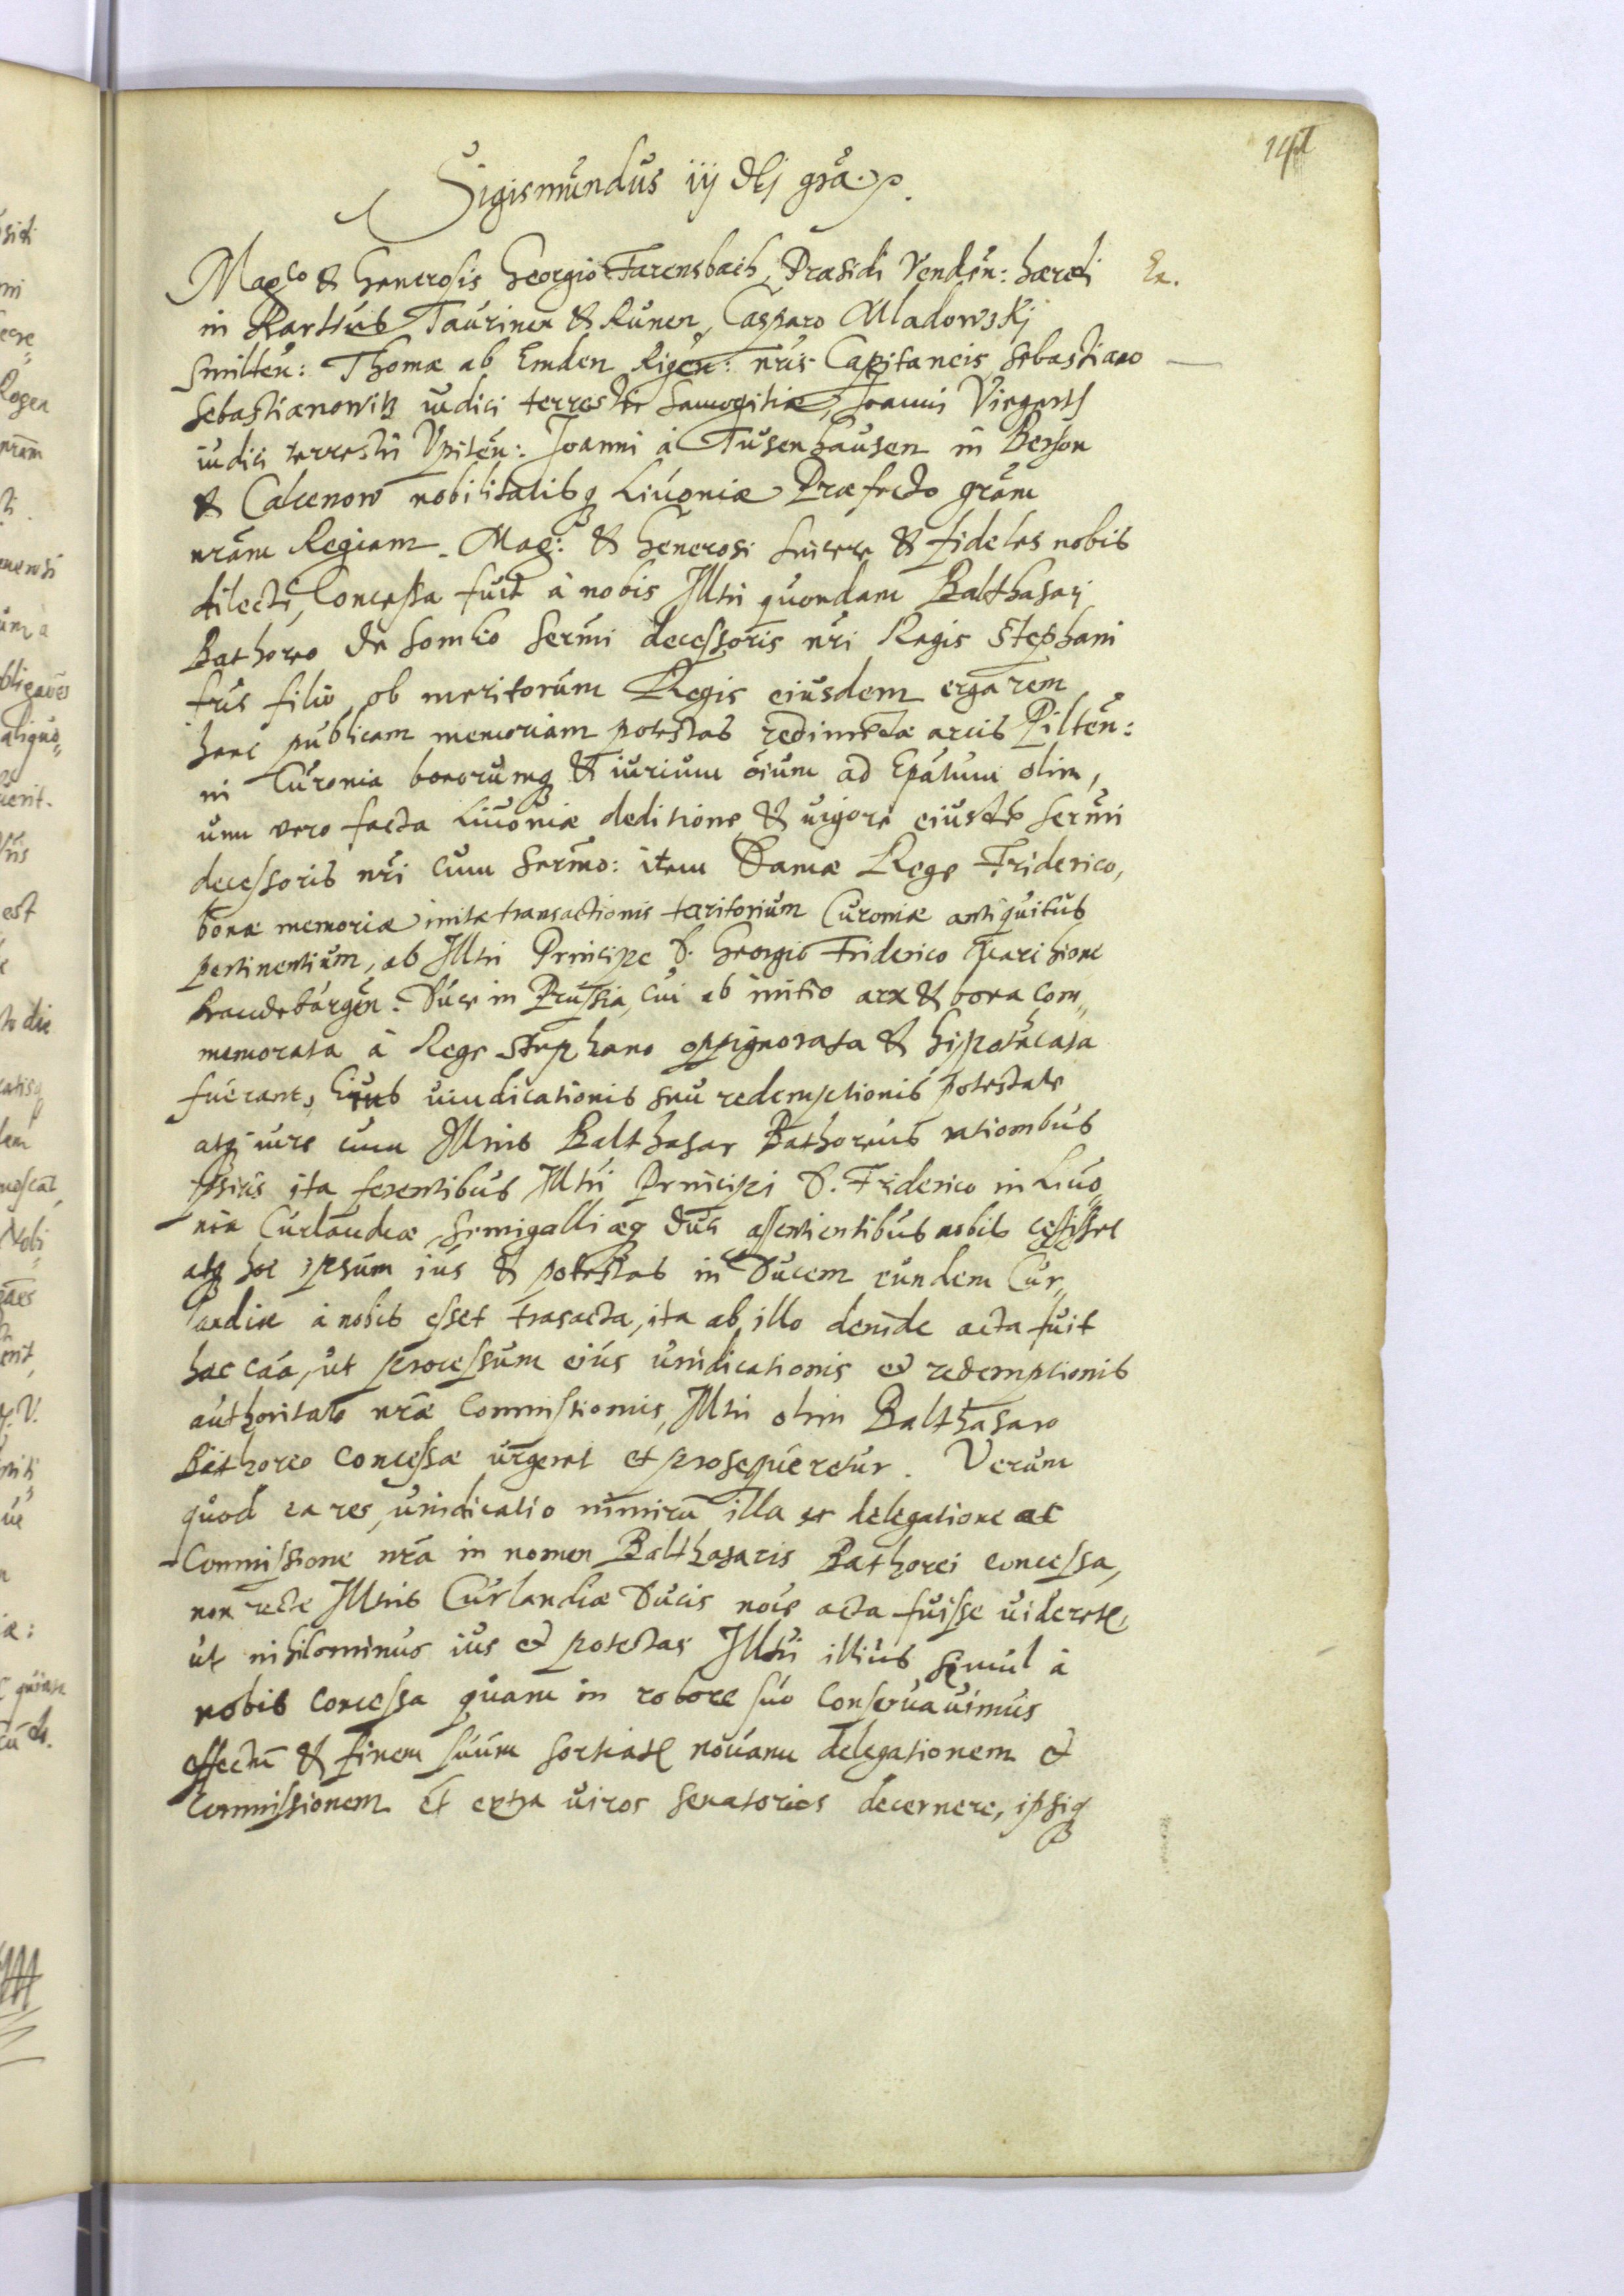 141
Sigismundus iij dej gra. p.
Magco & Generosis Georgio Farensbach, Præsidi Venden: hæredi Ex.
in Karhus Taurinen & Runen, Casparo Mladowskj
Smilten: Thomæ ab Emden Rigen: nris Capitaneis, Sebastiano
Sebastianowitz iudici terrestri Samogitiæ, Joanni
iudici terrestri Upiten: Joanni à Tusenhausen in Berson
& Calcenow nobilitatisq Livoniæ Præfecto gram
nram Regiam. Mag: & Generosi sincere & fideles nobis
dilecti, Concessa fuit à nobis Illtri quondam Balthasarj
Bathoreo de Somlio Sermi decessoris nri Regis Stephani
fris filio, ob meritorum Regis eiusdem erga rem
hanc publicam memoriam potestas redimendæ arcis Pilten:
in Curonia bonorumq & iurium oium ad Epatum olim,
unu vero facta Livoniæ deditione, & vigore eiusde Sermi
decessoris nri cum Sermo: item Daniæ Rege Friderico,
bonæ memoriæ initæ transactionis territorium Curoniæ antiquitus
pertinentium, ab Illtri Principe D. Georgio Friderico Marchione
Brandeburgen. Duce in Prussia, cui ab initio arx & bona com„
memorata à Rege Stephano oppignorata & hipothecata
fuerant, Huius vindicationis seu redemptionis potestate
atq iure cum Illtris Balthasar Bathoreus rationibus
ipsius ita ferentibus Illtri Principi D. Friderico in Livo„
nia Curlandiæ Semigalliæq Duci assentientibus nobis cessisset
atq hoc ipsum ius & potestas in Ducem eundem Cur„
landiæ à nobis esset trasacta, ita ab illo deinde acta fuit
hæc caa, ut processum eius vindicationis et redemptionis
authoritate nræ Commissionis, Illtri olim Balthasaro
Bathoreo concessæ urgeret et prosequeretur. Verum
quod ea res, vindicatio nimiru illa ex delegatione ac
Commissione nra in nomen Balthasaris Bathorei concessa,
non recte Illtris Curlandiæ Ducis noie acta fuisse videretr,
ut nihilominus ius et potestas Illtri illius simul à
nobis concessa quam in robore suo conservavimus
effectu & finem suum sortiatr novam delegationem et
Commissionem et extra viros senatorios decernere, ipsiq